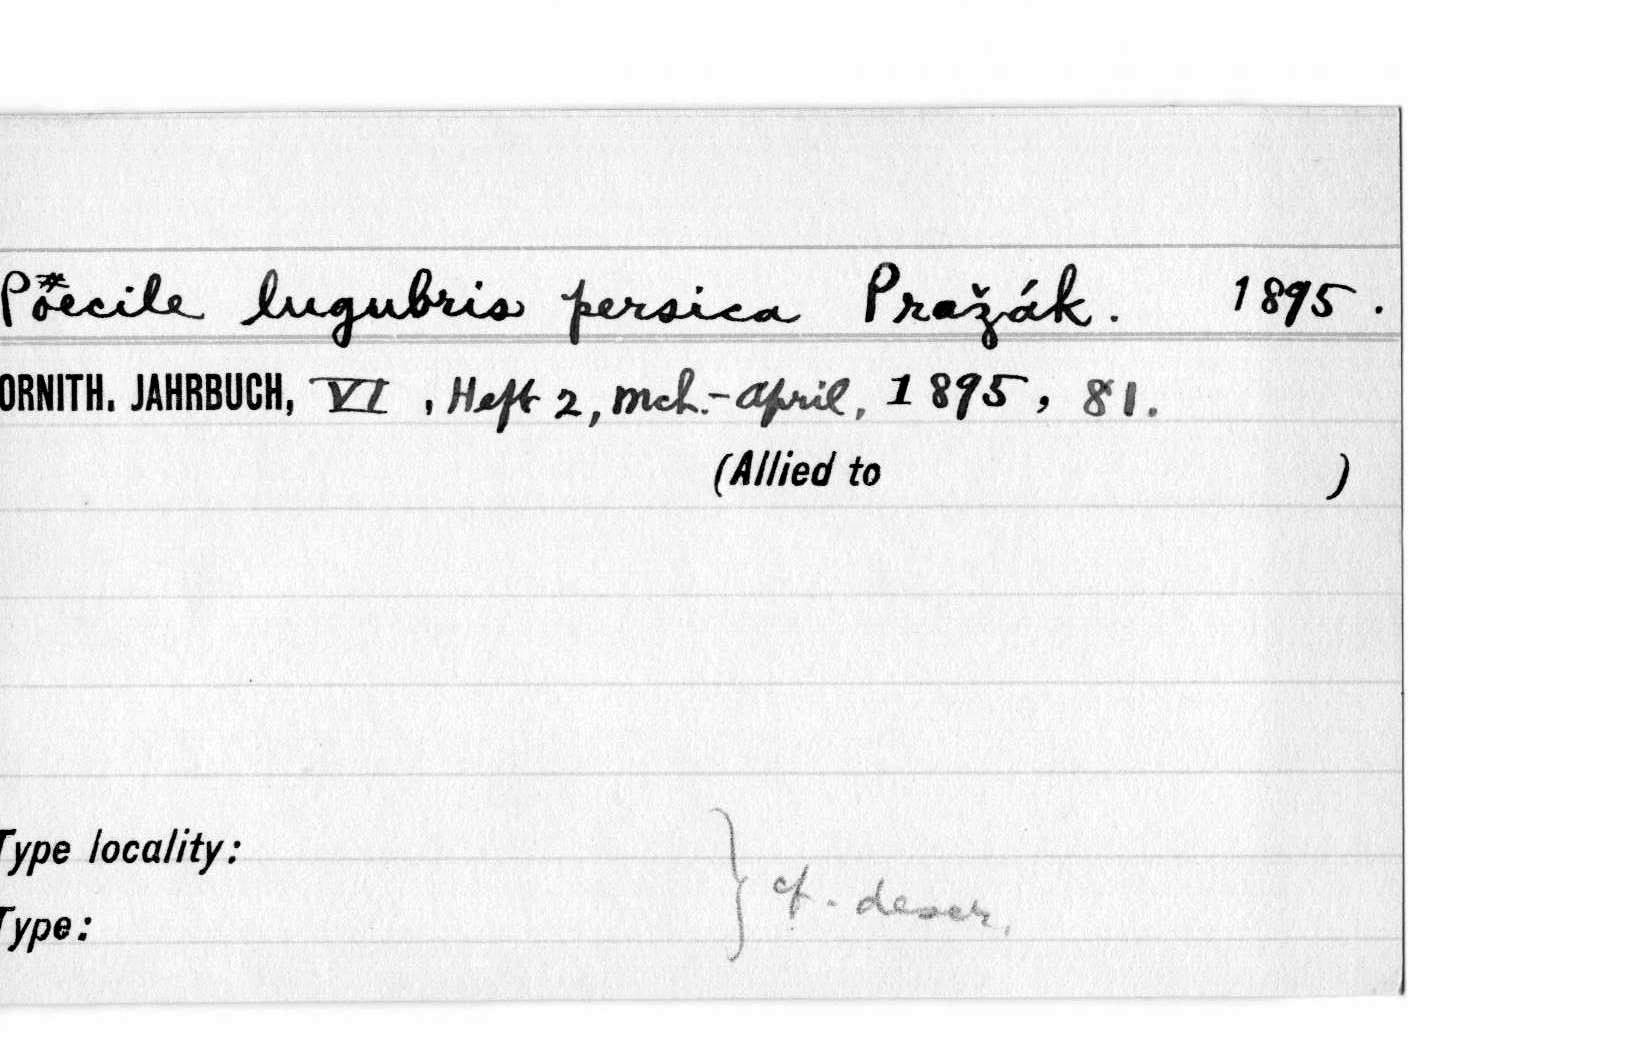 Poecile lugubris persica Pražák. 1895.
ORNITH. JAHRBUCH, VI, Heft 2, Mch.-April, 1895, 81.
(Allied to )
Type locality:
Type:
} cf. descr.